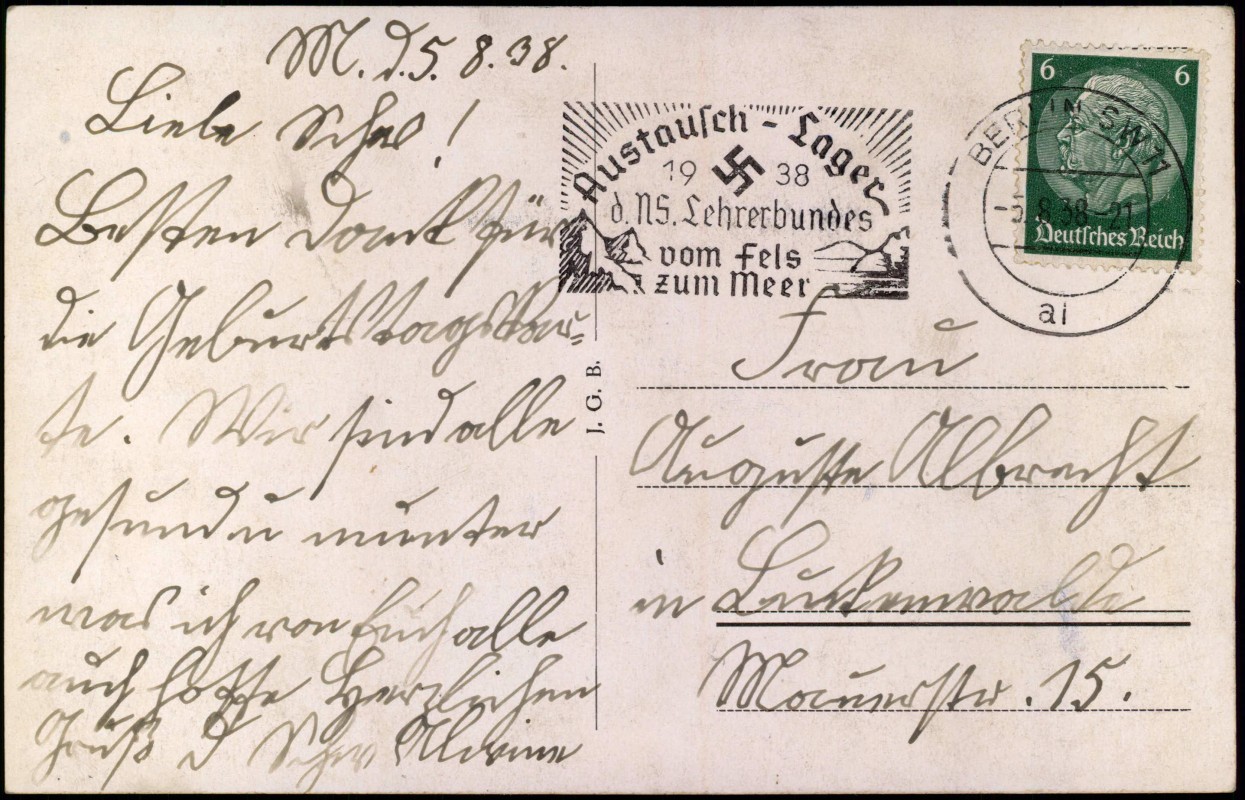 M. d. 5. 8. 38.
Liebe Schw!
Besten Dank für
die Geburtstagskar=
te. Wir sind alle
gesund u munter
was ich von Euch alle
auch hoffe Herzlichen
Gruß d Schw Alwine
Austausch-Lager
19 38
d. NS. Lehrerbundes
vom Fels
zum Meer
6 6
Deutsches Reich
BERLIN SW 11
-5.8.38-21
ai
J. G. B.
Frau
Auguste Albrecht
in Luckenwalde
Mauerstr. 15.